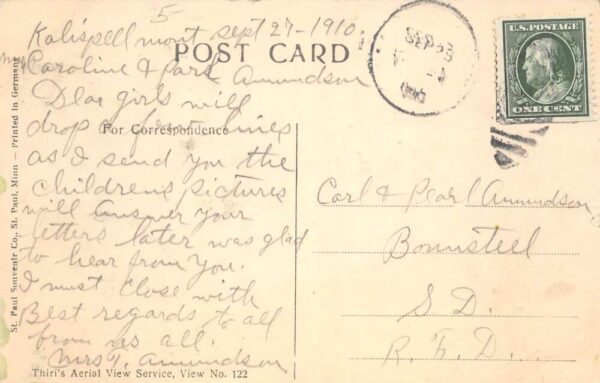 5
Kalispell mont sept 27-1910
POST CARD
Caroline & Pearl Amundson
Dear girls will
drop a few lines
For Correspondence
as I send you the
childrens pictures
will answer your
letters later was glad
to hear from you.
I must close with
Best regards to all
from us all.
Mrs T. Amundson
Thiri's Aerial View Service, View No. 122
St. Paul Souvenir Co., St. Paul, Minn — Printed in Germany
SEP
U.S. POSTAGE
ONE CENT
Carl & Pearl Amundson
Bonesteel
S D.
R. F. D.